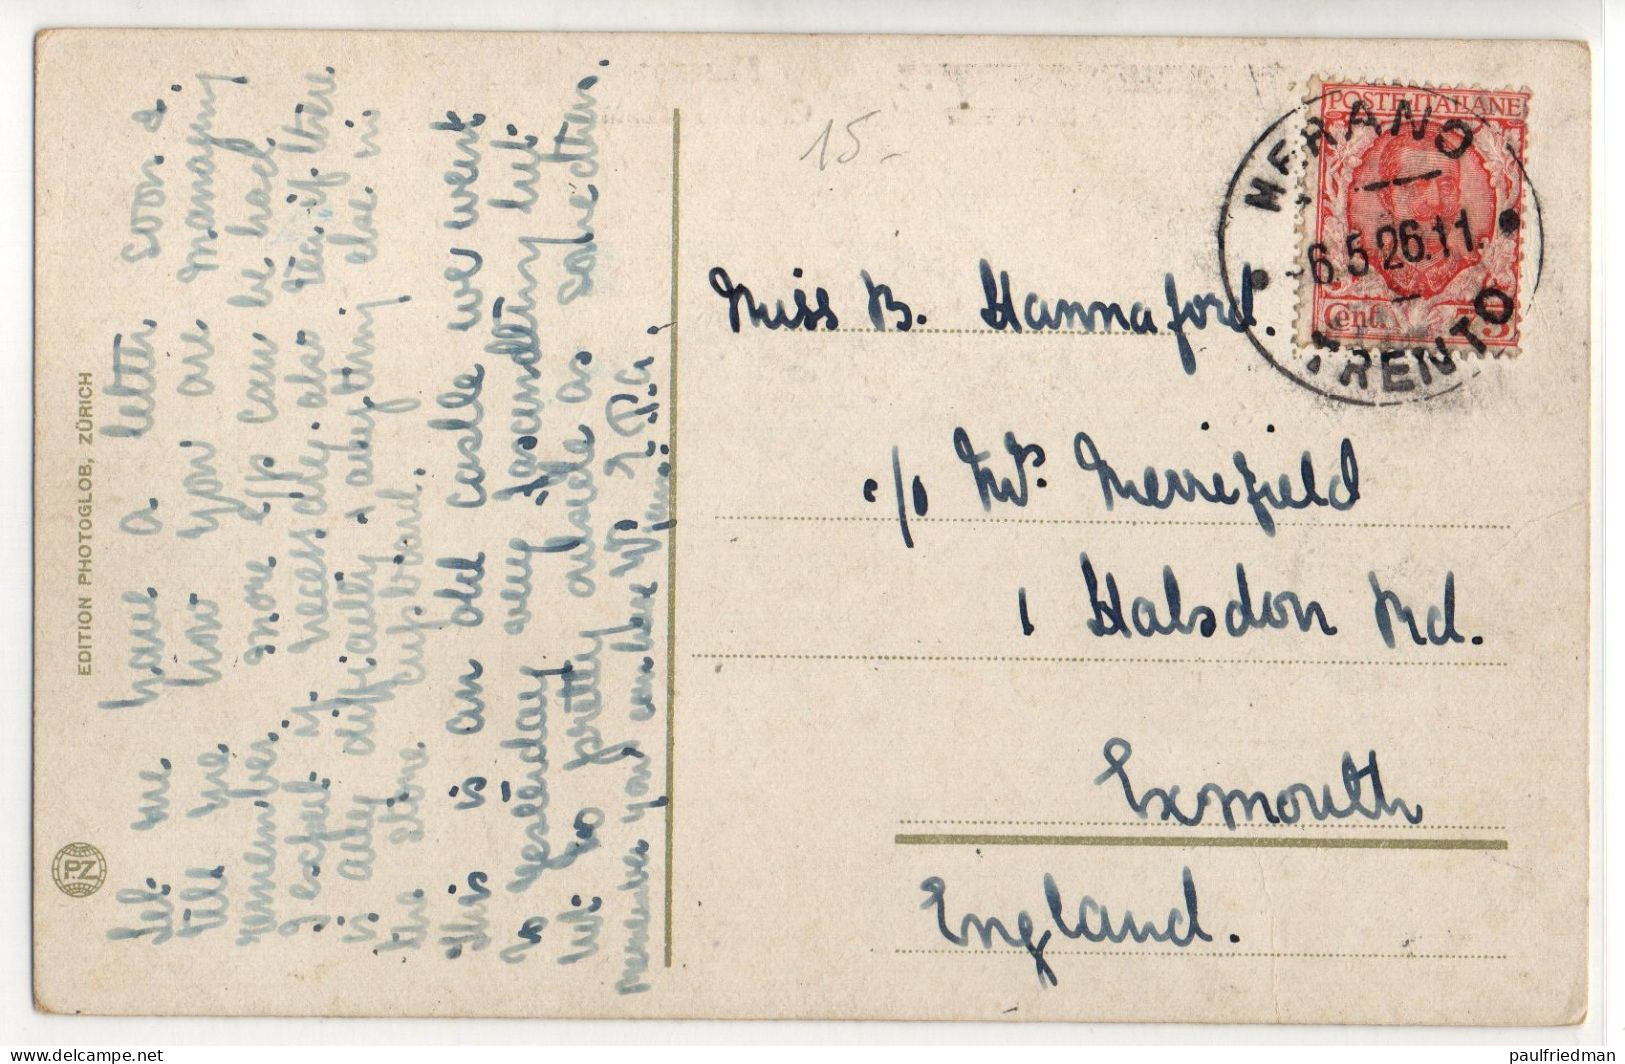 EDITION PHOTOGLOB, ZÜRICH
P.Z
Let me have a letter soon &
tell me how you are managing
remember more £ps can be had
I expect if necessary. also tea if there
is any difficulty & anything else in
the store cupboard.
This is an old castle we went
to yesterday very fascinating but
not so pretty outside as some others
remember you
15-
POSTE ITALIANE
Cent.
MERANO
-6.5 26.11.
TRENTO
Miss B. Hannaford.
c/o Mrs. Merrifield
1 Halsdon Rd.
Exmouth
England.
delcampe.net
paulfriedman